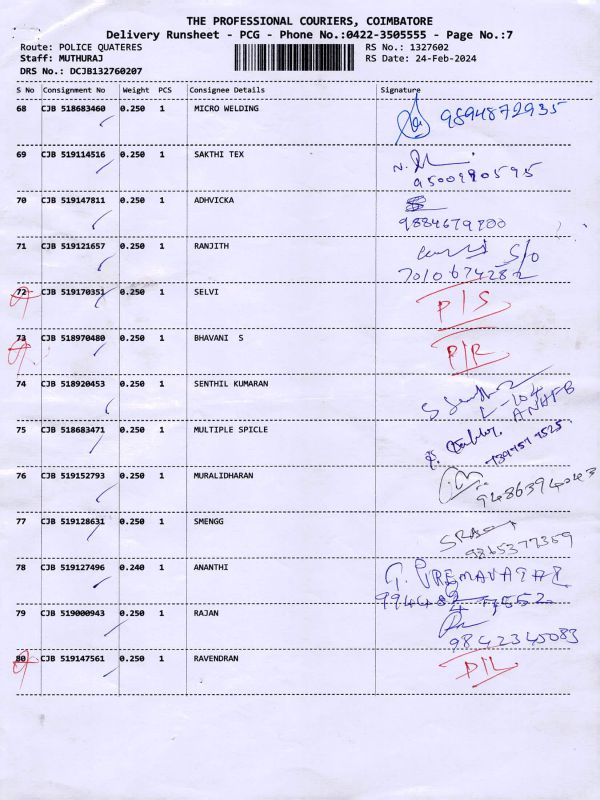 THE PROFESSIONAL COURIERS, COIMBATORE
Delivery Runsheet - PCG - Phone No.:0422-3505555 - Page No.:7
Route: POLICE QUATERES RS No.: 1327602
Staff: MUTHURAJ RS Date: 24-Feb-2024
DRS No.: DCJB132760207
S No Consignment No Weight PCS Consignee Details Signature
68 CJB 518683460 0.250 1 MICRO WELDING 9894872935
69 CJB 519114516 0.250 1 SAKTHI TEX
9500990595
70 CJB 519147811 0.250 1 ADHVICKA
9884679900
71 CJB 519121657 0.250 1 RANJITH S/O
7010674282
72 CJB 519170351 0.250 1 SELVI P/S
73 CJB 518970480 0.250 1 BHAVANI S P/R
74 CJB 518920453 0.250 1 SENTHIL KUMARAN
L-104
75 CJB 518683471 0.250 1 MULTIPLE SPICLE
76 CJB 519152793 0.250 1 MURALIDHARAN
9486394043
77 CJB 519128631 0.250 1 SMENGG
9845377359
78 CJB 519127496 0.240 1 ANANTHI G. PREMAVATHI
79 CJB 519000943 0.250 1 RAJAN
9842345083
80 CJB 519147561 0.250 1 RAVENDRAN P/L